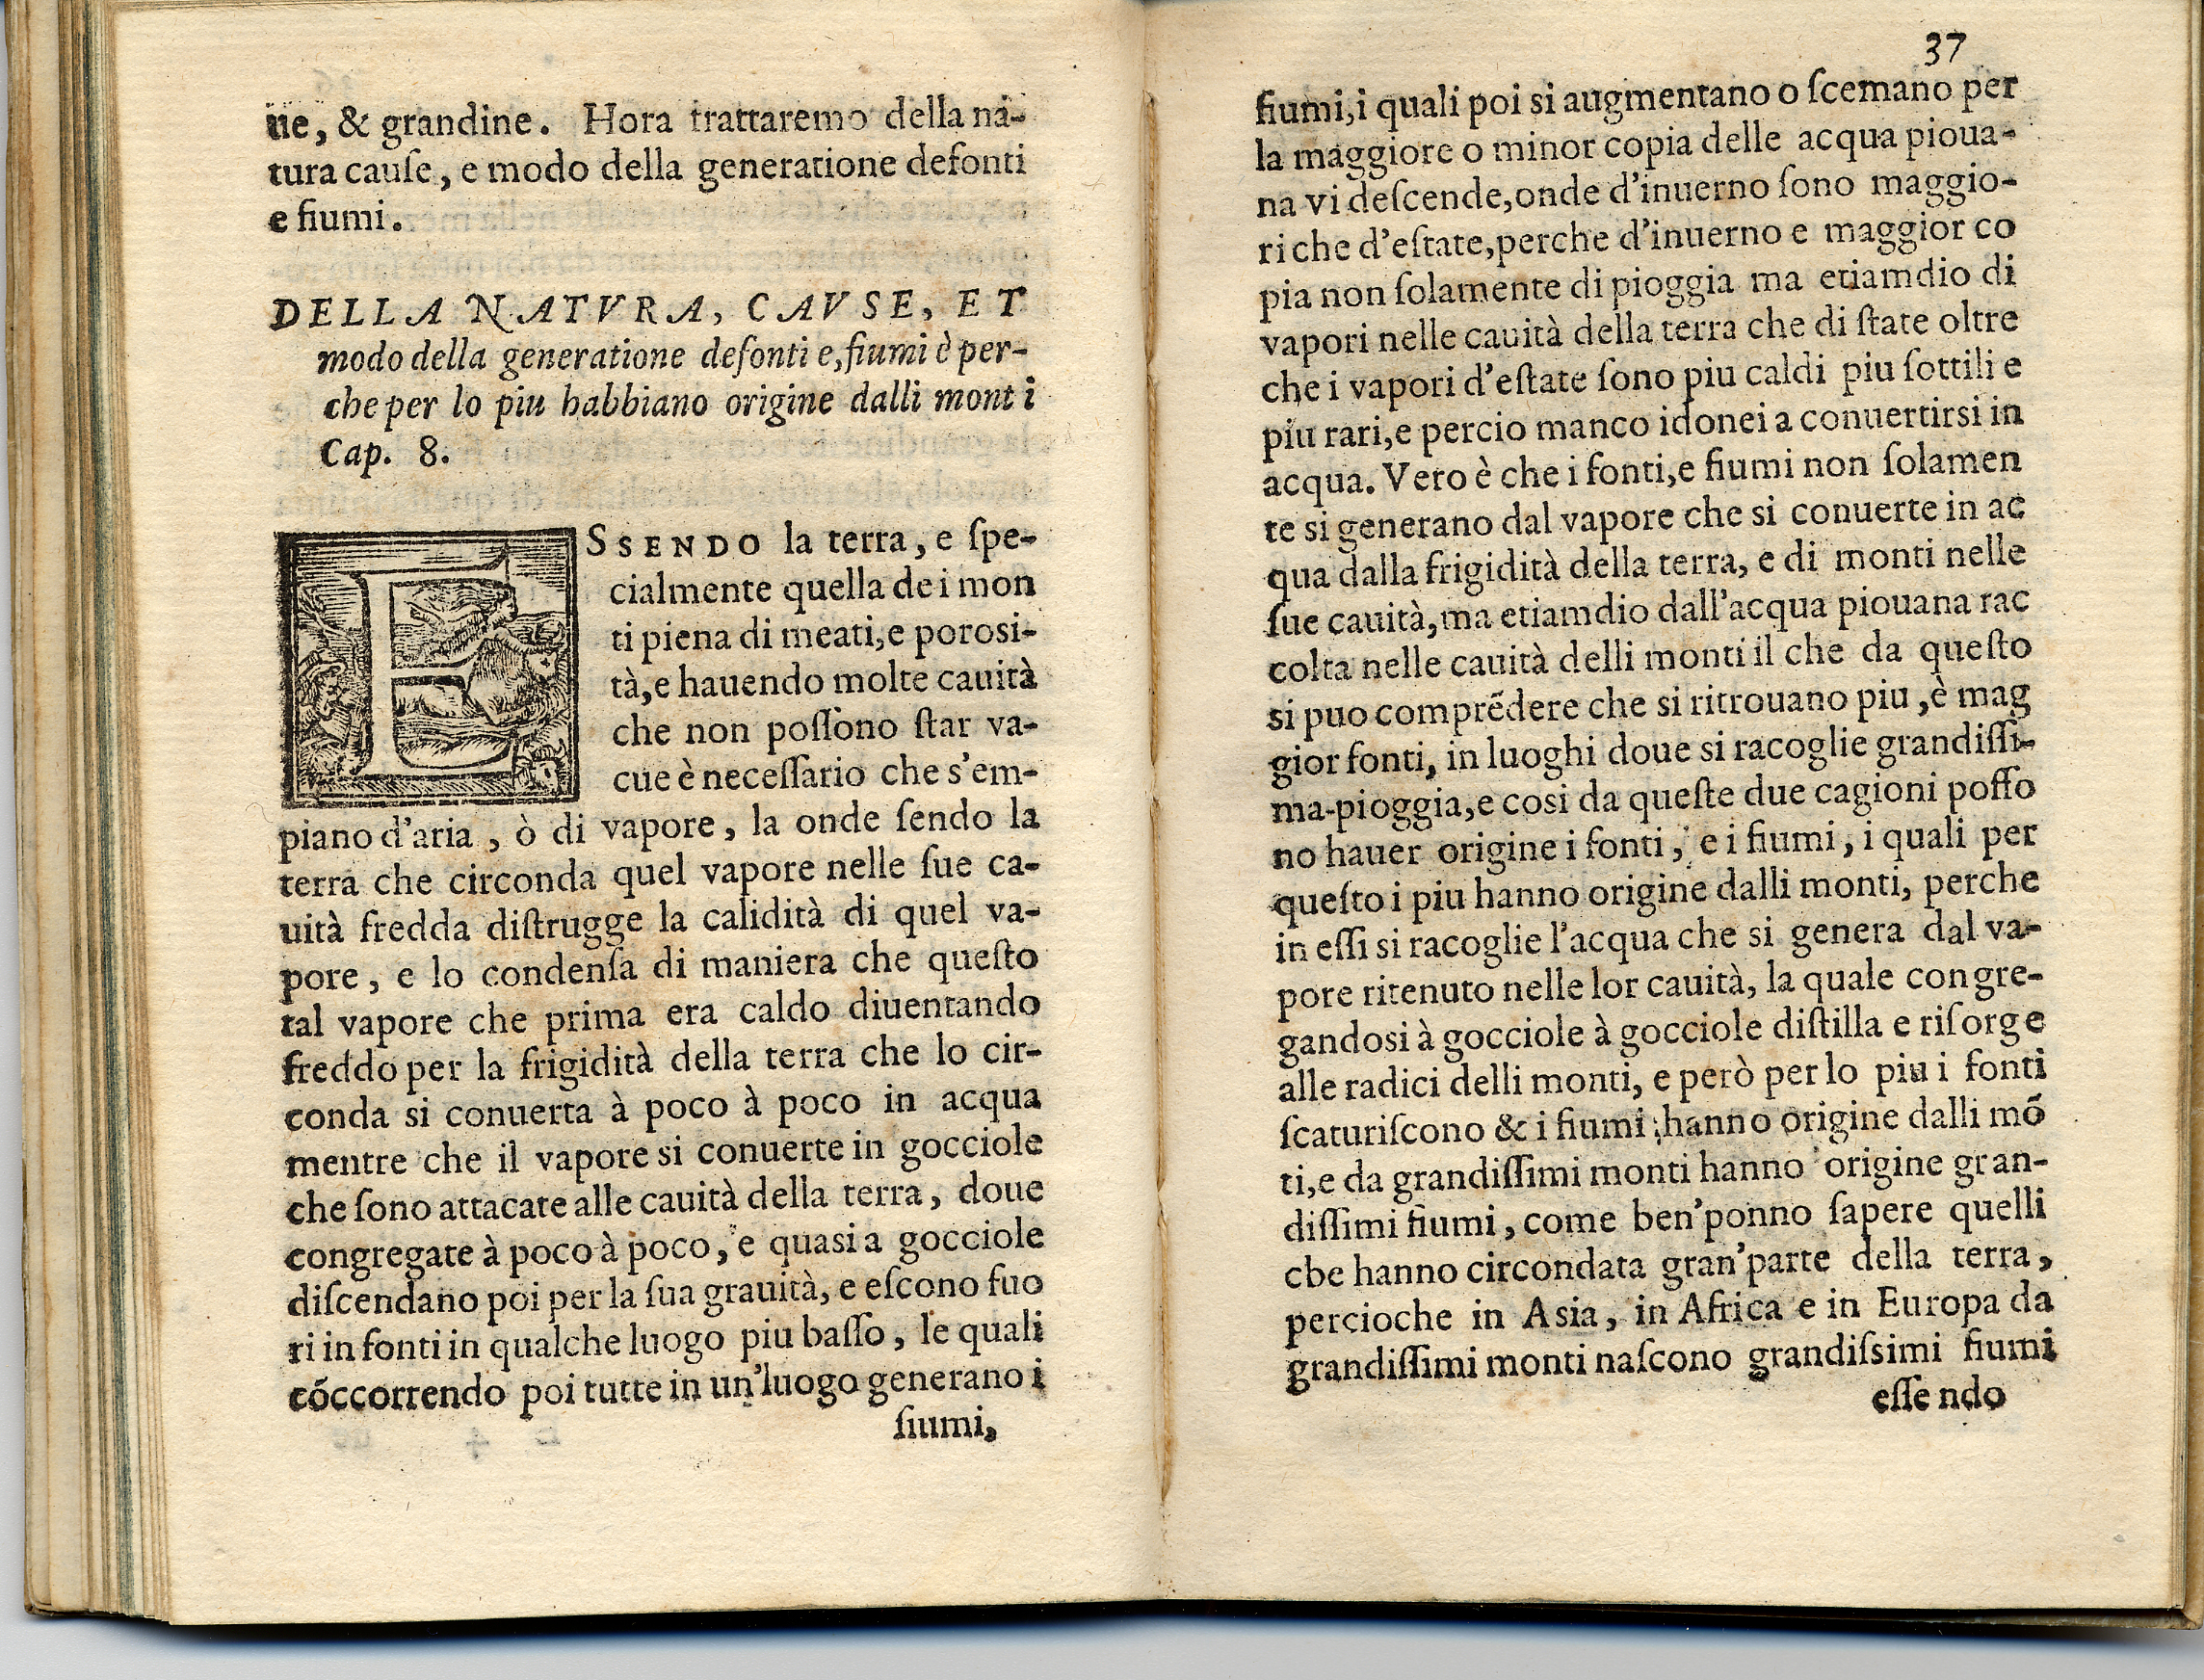 ue, & grandine. Hora trattaremo della na-
tura cauſe, e modo della generatione defonti
e fiumi.
DELLA NATVRA, CAVSE, ET
modo della generatione defonti e, fiumi è per-
che per lo piu habbiano origine dalli monti
Cap. 8.
ESSENDO la terra, e ſpe-
cialmente quella dei mon
ti piena di meati, e poroſi-
tà, e hauendo molte cauità
che non poſſono ſtar va-
cue è neceſſario che s'em-
piano d'aria, ò di vapore, la onde ſendo la
terra che circonda quel vapore nelle ſue ca-
uità fredda diſtrugge la calidità di quel va-
pore, e lo condenſa di maniera che queſto
tal vapore che prima era caldo diuentando
freddo per la frigidità della terra che lo cir-
conda si conuerta à poco à poco in acqua
mentre che il vapore si conuerte in gocciole
che ſono attacate alle cauità della terra, doue
congregate à poco à poco, e quasi a gocciole
diſcendano poi per la ſua grauità, e eſcono fuo
ri in fonti in qualche luogo piu baſſo, le quali
cóccorrendo poi tutte in un'luogo generano i
fiumi,
37
fiumi, i quali poi si augmentano o ſcemano per
la maggiore o minor copia delle acqua pioua-
na vi deſcende, onde d'inuerno ſono maggio-
ri che d'eſtate, perche d'inuerno e maggior co
pia non ſolamente di pioggia ma etiamdio di
vapori nelle cauità della terra che di ſtate oltre
che i vapori d'eſtate ſono piu caldi piu ſottili e
piu rari, e percio manco idonei a conuertirsi in
acqua. Vero è che i fonti, e fiumi non ſolamen
te si generano dal vapore che si conuerte in ac
qua dalla frigidità della terra, e di monti nelle
ſue cauità, ma etiamdio dall'acqua piouana rac
colta nelle cauità delli monti il che da queſto
si puo comprẽdere che si ritrouano piu, è mag
gior fonti, in luoghi doue si racoglie grandiſſi-
ma-pioggia, e cosi da queſte due cagioni poſſo
no hauer origine i fonti, e i fiumi, i quali per
queſto i piu hanno origine dalli monti, perche
in eſſi si racoglie l'acqua che si genera dal va-
pore ritenuto nelle lor cauità, la quale congre-
gandosi à gocciole à gocciole diſtilla e riſorge
alle radici delli monti, e però per lo piu i fonti
ſcaturiſcono & i fiumi hanno origine dalli mõ
ti, e da grandiſſimi monti hanno origine gran-
diſſimi fiumi, come ben'ponno ſapere quelli
cbe hanno circondata gran'parte della terra,
percioche in Asia, in Africa e in Europa da
grandiſſimi monti naſcono grandiſsimi fiumi
eſſe ndo